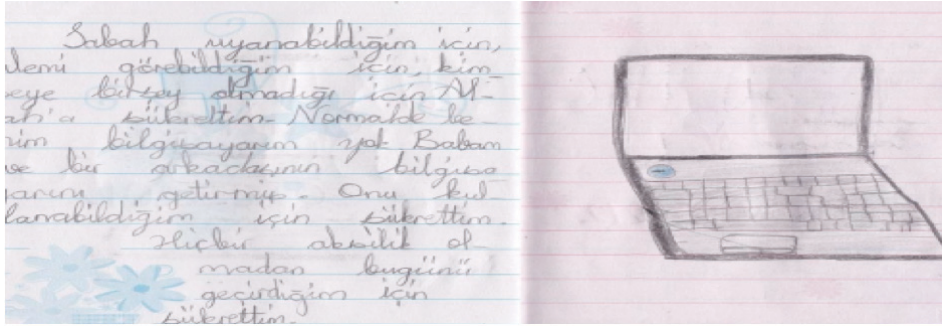 Sabah uyanabildiğim için,
demi görebildiğim için, kim
seye birşey olmadığı için Al-
lah'a şükrettim. Normalde be-
nim bilgisayarım yok Babam
eve bir arkadaşının bilgisa
yarını getirmiş. Onu kul
lanabildiğim için şükrettim.
Hiçbir aksilik ol
madan bugünü
geçirdiğim için
şükrettim.